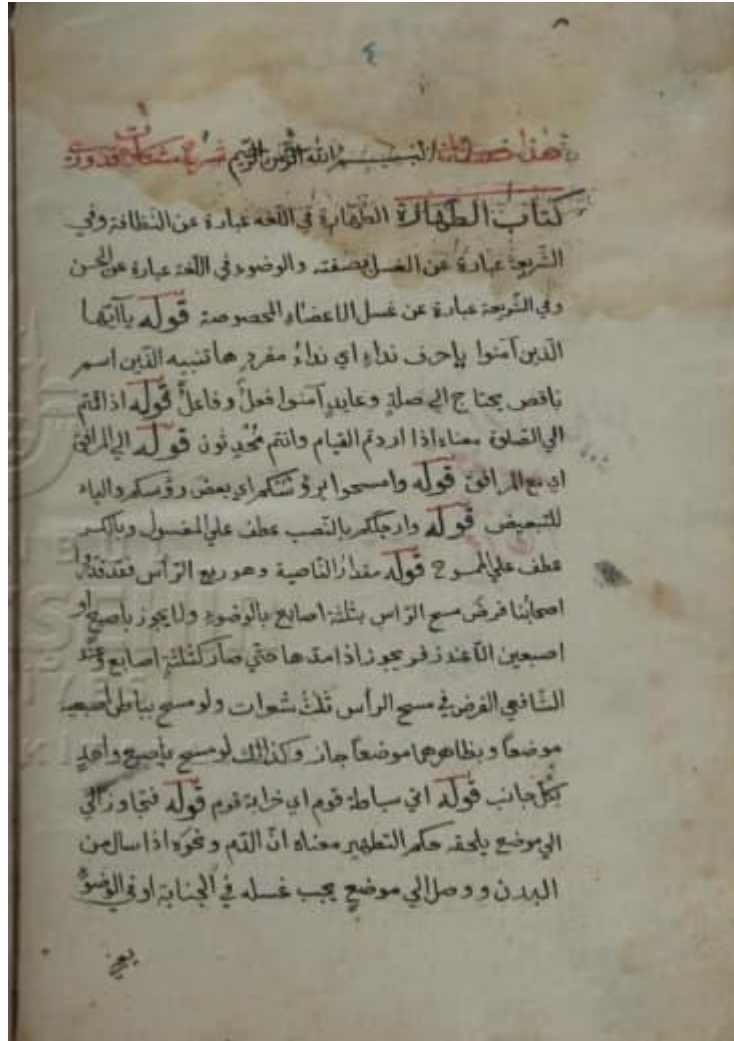 ٤
هذا بسم الله الرحمن الرحيم شرح مشكلات قدوري
كتاب الطهارة الطهارة في اللغة عبارة عن النظافة وفي
الشريعة عبارة عن الغسل بصفته والوضوء في اللغة عبارة عن الحسن
وفي الشريعة عبارة عن غسل الاعضاء المخصوصة قوله ياآيّها
الذين آمنوا يا حرف نداءٍ اي نداءُ مفردٍ ها تنبيه الذين اسم
ناقص يحتاج الي صلةٍ وعايدٍ آمنوا فعلٌ وفاعلٌ قوله اذا قمتم
الي الصلوة معناه اذا اردتم القيام وانتم مُحْدِثون قوله الي المرافق
اي مع المرافق قوله وامسحوا برؤسكم اي بعض رؤسكم والباء
للتبعيض قوله وارجلكم بالنصب عطف علي المغسول وبالكسر
عطف علي قوله مقدار الناصية وهو ربع الرأس فقد قدّروا
اصحابنا فرض مسح الراس بثلثة اصابع بالوضوء ولا يجوز باصبعٍ او
اصبعين الّا عند زفر يجوز اذا امدّها حتّي صار كثلثة اصابع وعند
الشافعي الفرض في مسح الرأس ثلثُ شعرات ولو مسح بباطن اصبعيه
موضعاً وبظاهرهما موضعاً جاز وكذالك لو مسح باصبع واحدٍ
بكل جانب قوله اتي سباطة قوم اي خرابة قوم قوله فتجاوز الي
الي موضع يلحقه حكم التطهير معناه انّ الدّم ونحوَه اذا سال من
البدن ووصل الي موضعٍ يجب غسله في الجنابة او في الوضوء